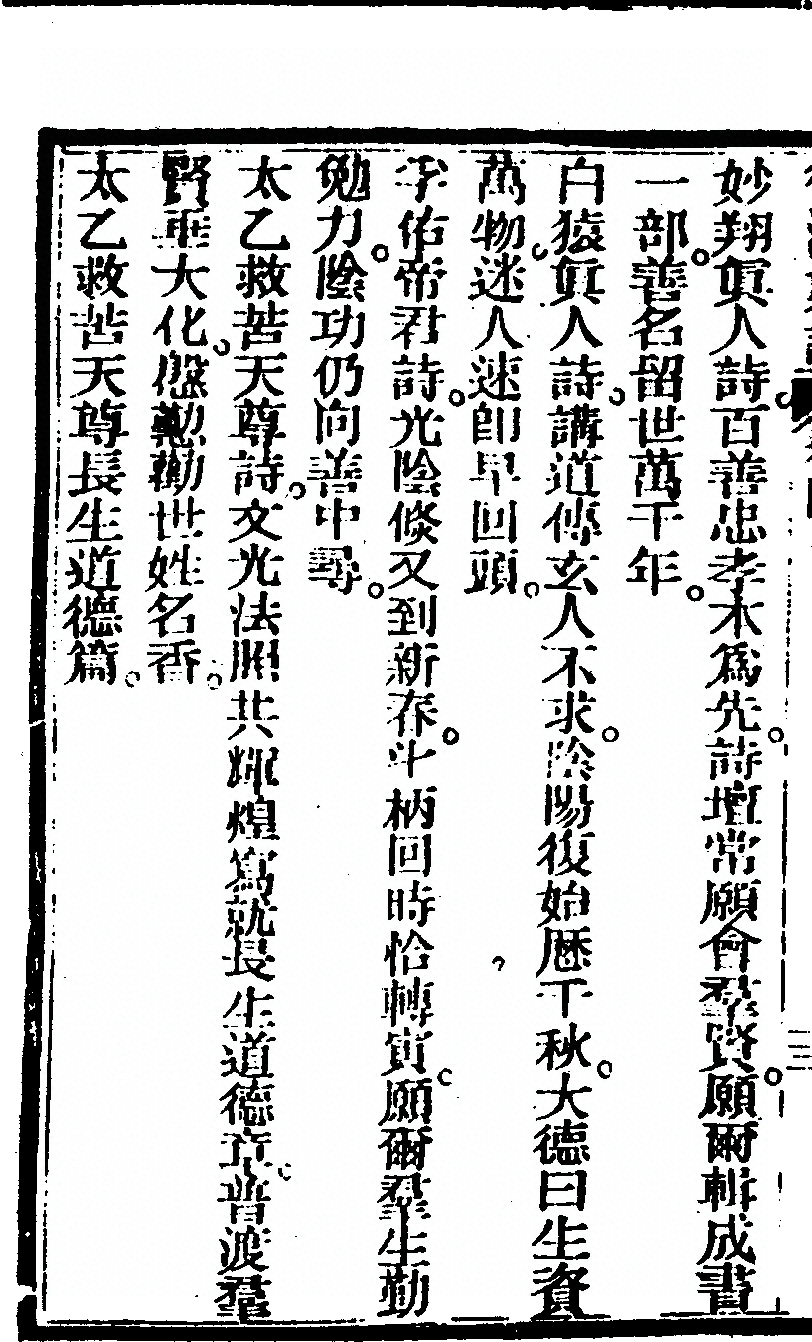 妙翔眞人詩百善忠孝木爲先。詩壇常願會羣賢。願爾輯成書
一部。善名留世萬千年。
白猿眞人詩。講道傳玄人不求。陰陽復始歷千秋。大德曰生資
萬物。迷人速卽早回頭。
孚佑帝君詩。光陰倐又到新春。斗柄回時恰轉寅。願爾羣生勤
勉力。陰功仍向善中尋。
太乙救苦天尊詩。文光法照共輝煌寫就長生道德章。普渡羣
賢垂大化。慇懃勸世姓名香。
太乙救苦天尊長生道德篇。